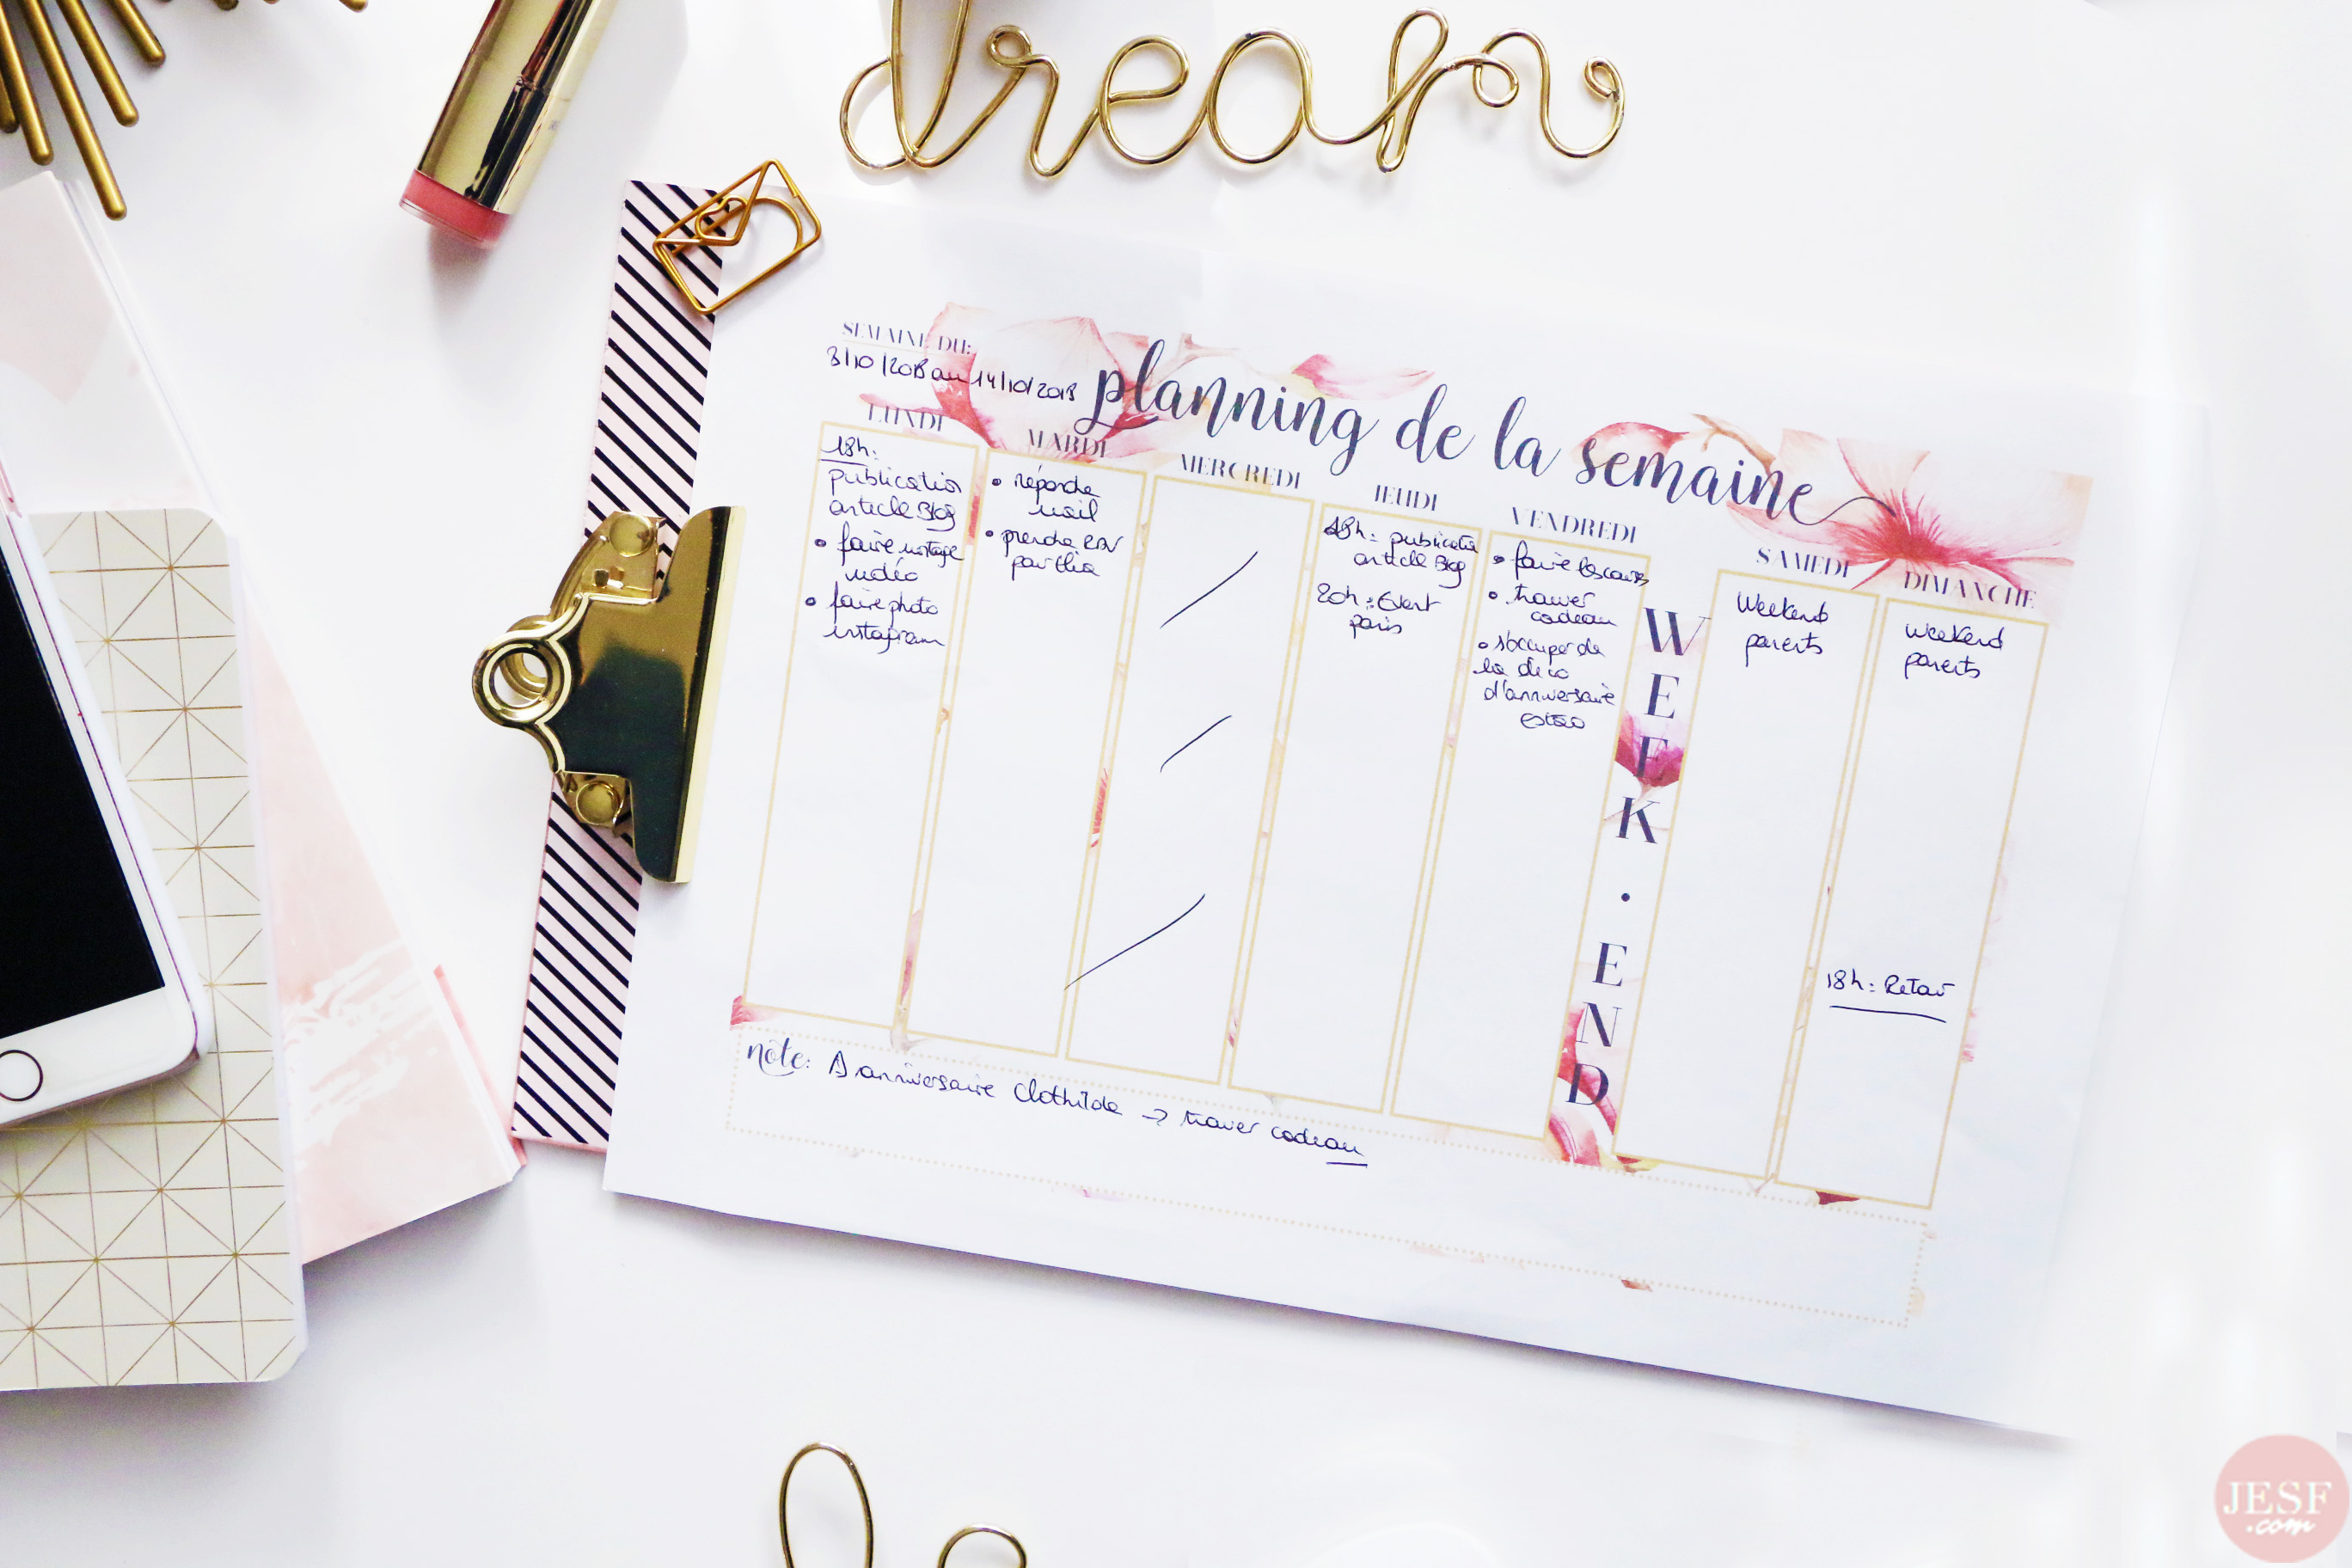 dream
SEMAINE DU:
3/10/2018 au 14/10/2018
planning de la semaine
LUNDI
18h:
publication
article Blog
• faire montage
vidéo
• faire photo
instagram
MARDI
• répondre
mail
• prendre RDV
MERCREDI
JEUDI
18h: publicati
article Blog
20h: Event
paris
VENDREDI
• faire les courses
• trouver
cadeau
• s'occuper de
la déco
d'anniversaire
WEEK·END
SAMEDI
Weekend
parents
DIMANCHE
weekend
parents
18h: Retour
note: anniversaire Clothilde → trouver cadeau
JESF
.com